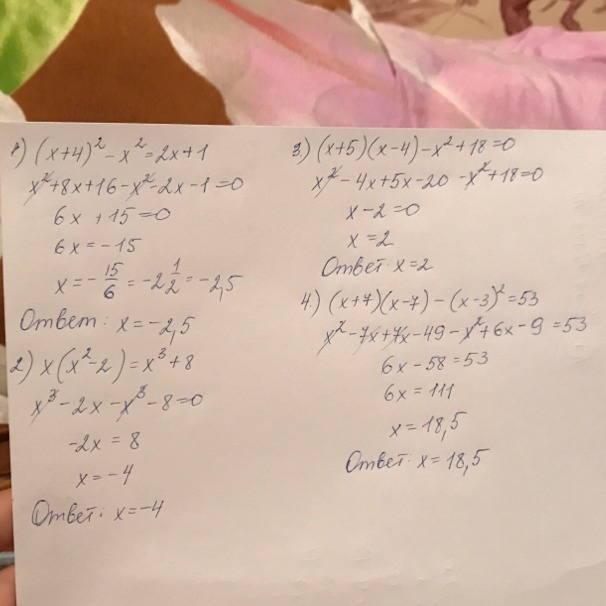 1) (x+4)² - x² = 2x+1
x² + 8x + 16 - x² - 2x - 1 = 0
6x + 15 = 0
6x = -15
x = -15/6 = -2 1/2 = -2,5
Ответ: x = -2,5
2) x(x² - 2) = x³ + 8
x³ - 2x - x³ - 8 = 0
-2x = 8
x = -4
Ответ: x = -4
3.) (x+5)(x-4) - x² + 18 = 0
x² - 4x + 5x - 20 - x² + 18 = 0
x - 2 = 0
x = 2
Ответ: x = 2
4.) (x+7)(x-7) - (x-3)² = 53
x² - 7x + 7x - 49 - x² + 6x - 9 = 53
6x - 58 = 53
6x = 111
x = 18,5
Ответ: x = 18,5